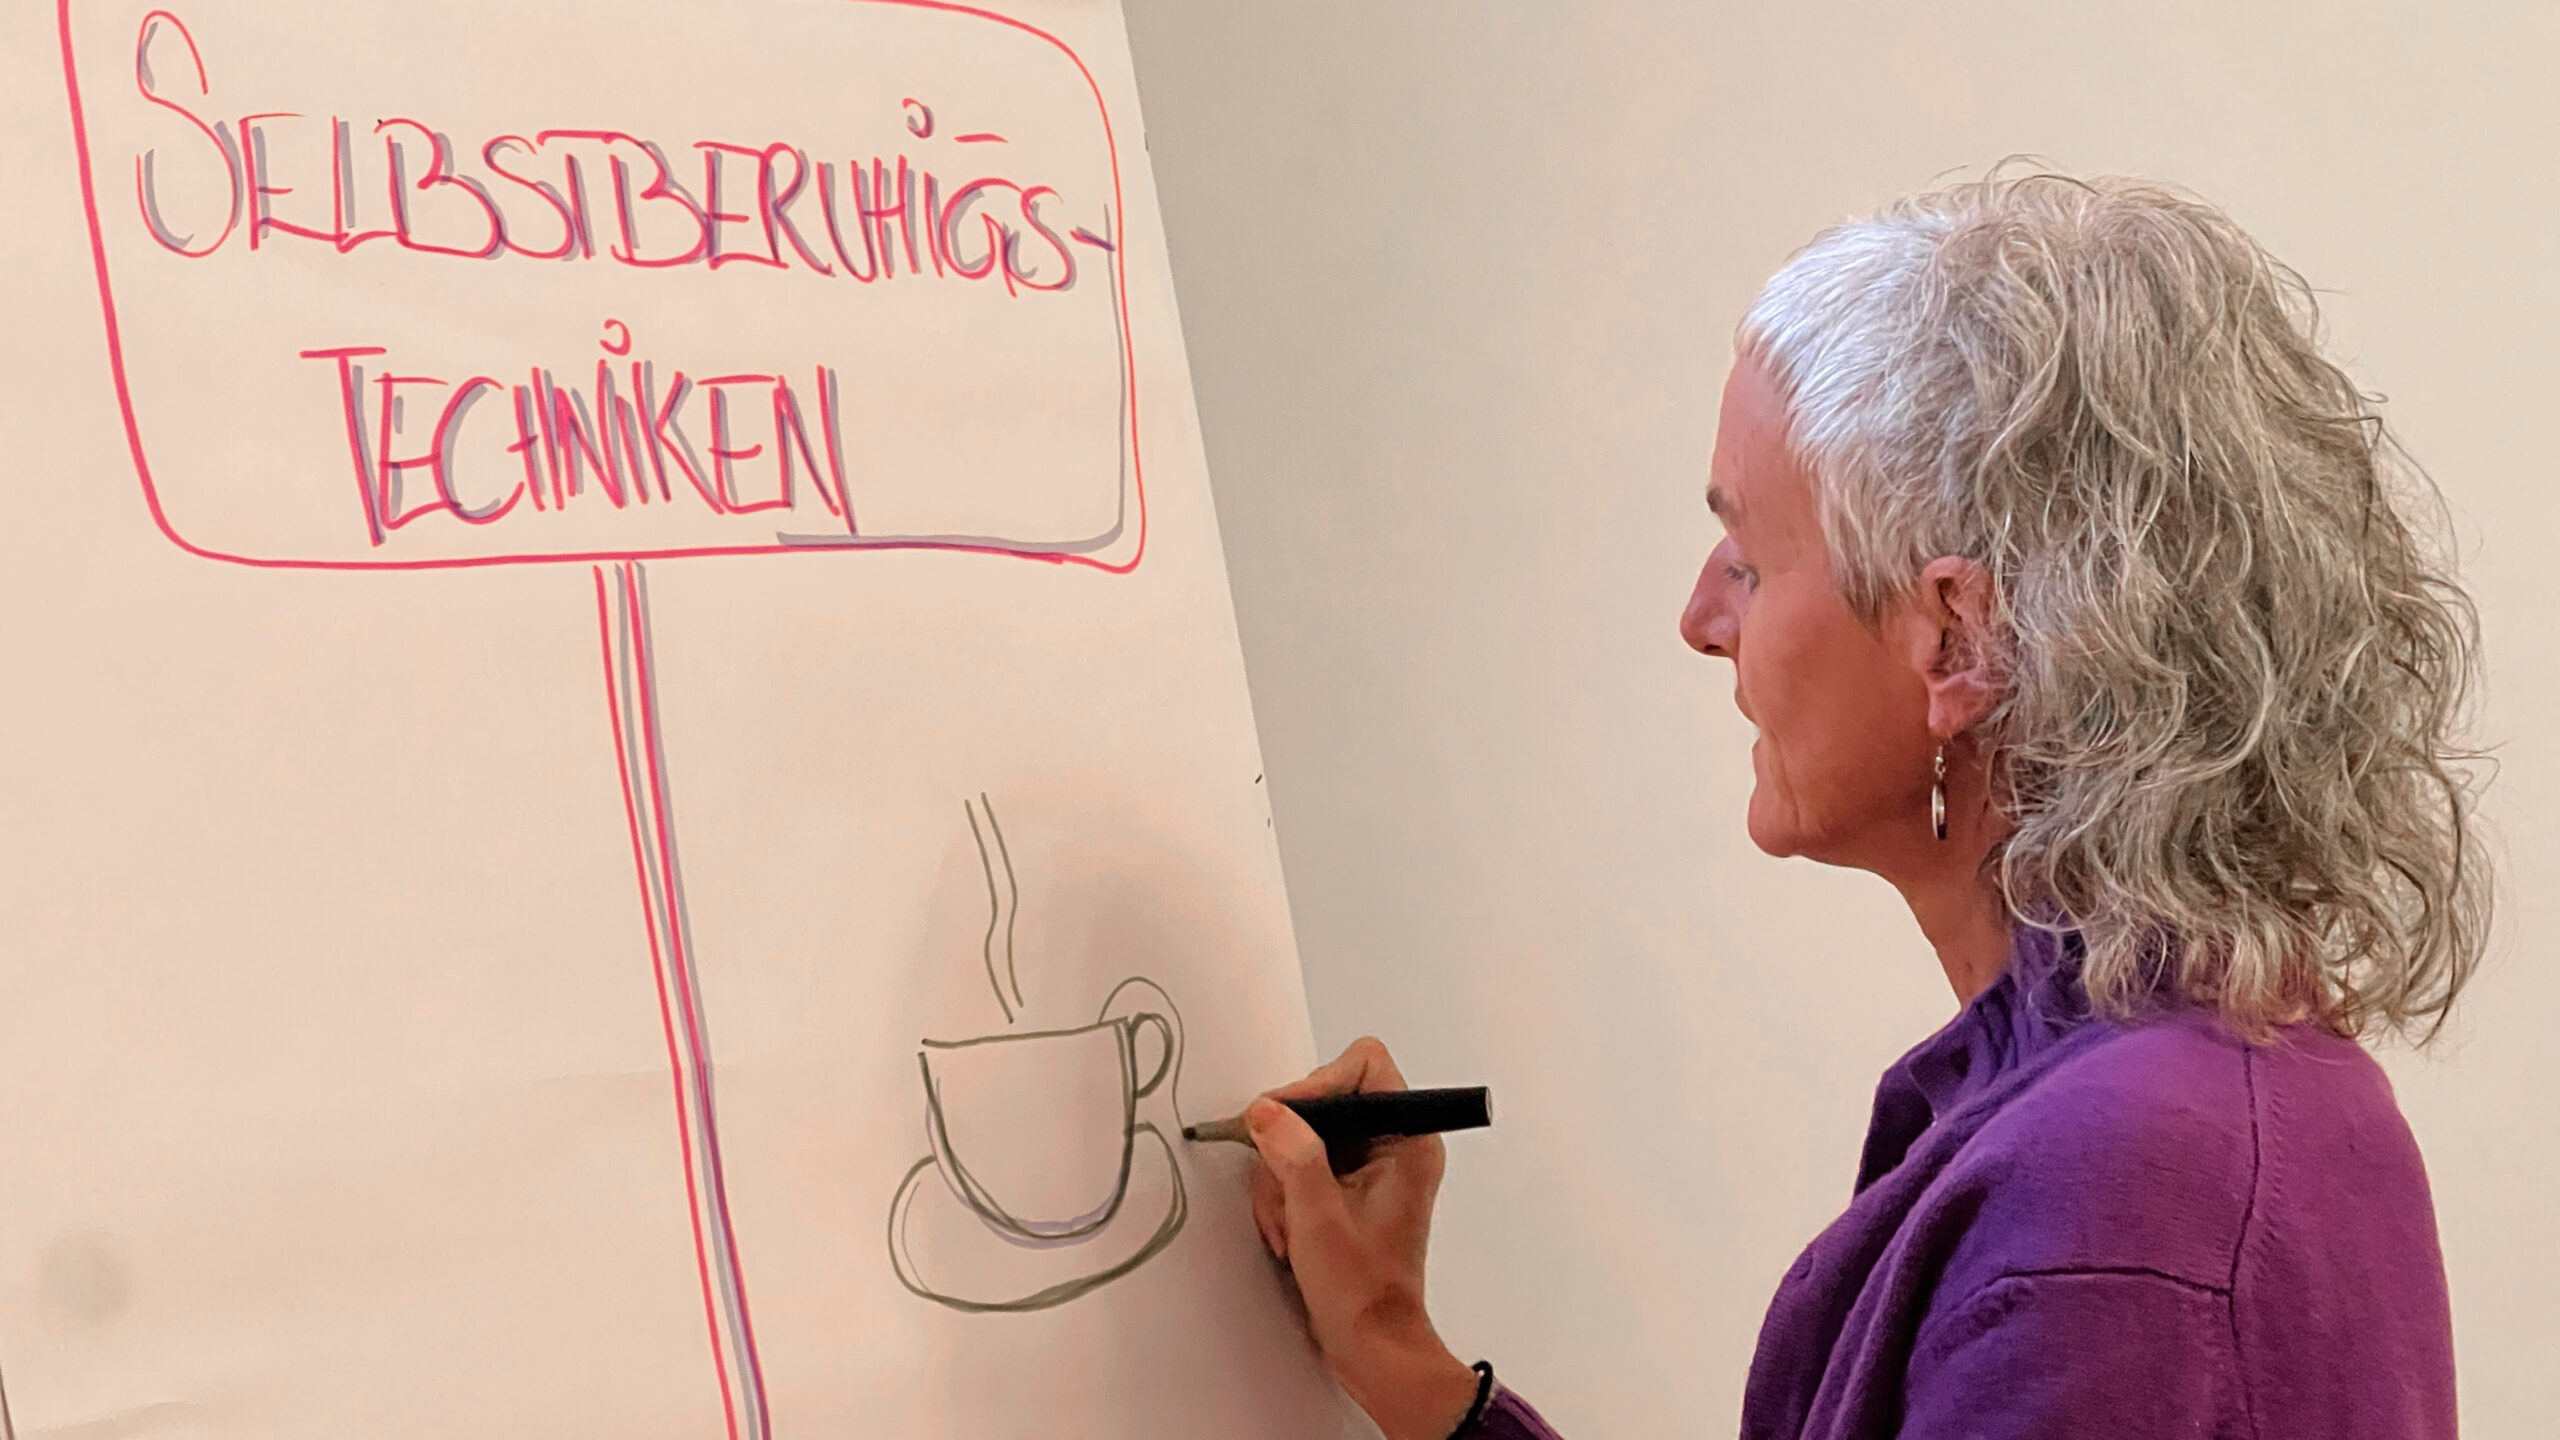 SELBSTBERUHiGS-
TECHNiKEN